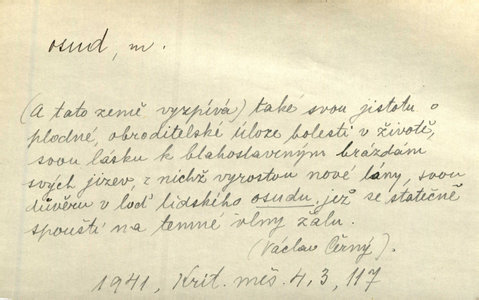 osud, m.
(A tato země vyzpívá) také svou jistotu o
plodné, obroditelské úloze bolesti v životě,
svou lásku k blahoslaveným brázdám
svých jizev, z nichž vyrostou nové lány, svou
důvěru v loď lidského osudu, jež se statečně
spouští na temné vlny žalu.
(Václav Černý).
1941, Krit. měs. 4, 3, 117